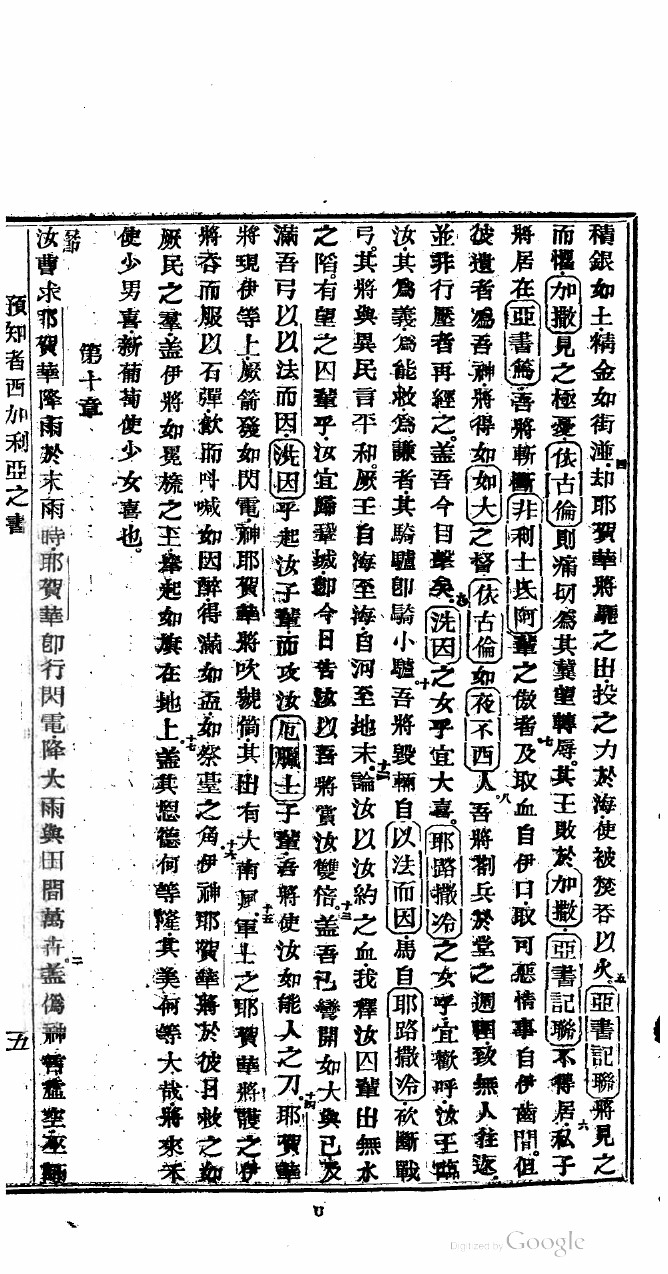 積銀如土精金如街湩四却耶賀華將驅之出投之力於海使被燹吞以火五亞書記聯將見之
而懼加撒見之極憂依古倫則痛切為其冀望轉辱其王敗於加撒亞書記聯不得居六私子
將居在亞書篤吾將斬斷非利士氏阿輩之傲者七及取血自伊口取可惡情事自伊齒間但
彼遺者為吾神將得如如大之督依古倫如夜不西人八吾將劄兵於堂之週圍致無人往返
並非行壓者再經之蓋吾今目擊矣九洗因之女乎宜大喜耶路撒冷之女乎宜歡呼汝王臨
汝其為義為能救為謙者其騎驢即騎小驢十吾將毀輛自以法而因馬自耶路撒冷砍斷戰
弓其將與異民言平和厥王自海至海自河至地末十一論汝以汝約之血我釋汝囚輩出無水
之陷十二有望之囚輩乎汝宜歸鞏城即今日告汝以吾將賞汝雙倍十三蓋吾已彎開如大與已及
滿吾弓以以法而因洗因乎起汝子輩而攻汝厄臘士子輩吾將使汝如能人之刀十四耶賀華
將現伊等上厥箭發如閃電神耶賀華將吹號筒其出有大南風十五軍士之耶賀華將護之伊
將吞而服以石彈飲而呌喊如因醉得滿如盃如祭壇之角十六伊神耶賀華將於彼日救之如
厥民之羣蓋伊將如冕梳之玉舉起如旗在地上十七蓋其恩德何等隆其美何等大哉將來禾
使少男喜新葡萄使少女喜也
第十章
一節汝曹求耶賀華降雨於末雨時耶賀華即行閃電降大雨與田間萬卉二蓋偽神嘗
預知者西加利亞之書
五
U
Digitized by Google